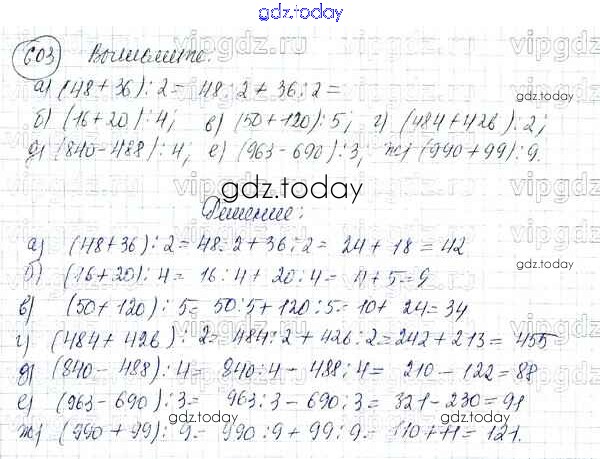 gdz.today
603 Вычислите.
а) (48+36):2 = 48:2 + 36:2 =
б) (16+20):4; в) (50+120):5; г) (484+426):2;
д) (840-488):4; е) (963-690):3; ж) (990+99):9.
gdz.today
Решение:
а) (48+36):2 = 48:2 + 36:2 = 24 + 18 = 42
б) (16+20):4 = 16:4 + 20:4 = 4+5 = 9
в) (50+120):5 = 50:5 + 120:5 = 10 + 24 = 34
г) (484+426):2 = 484:2 + 426:2 = 242 + 213 = 455
д) (840-488):4 = 840:4 - 488:4 = 210 - 122 = 88
е) (963-690):3 = 963:3 - 690:3 = 321 - 230 = 91
ж) (990+99):9 = 990:9 + 99:9 = 110 + 11 = 121.
gdz.today